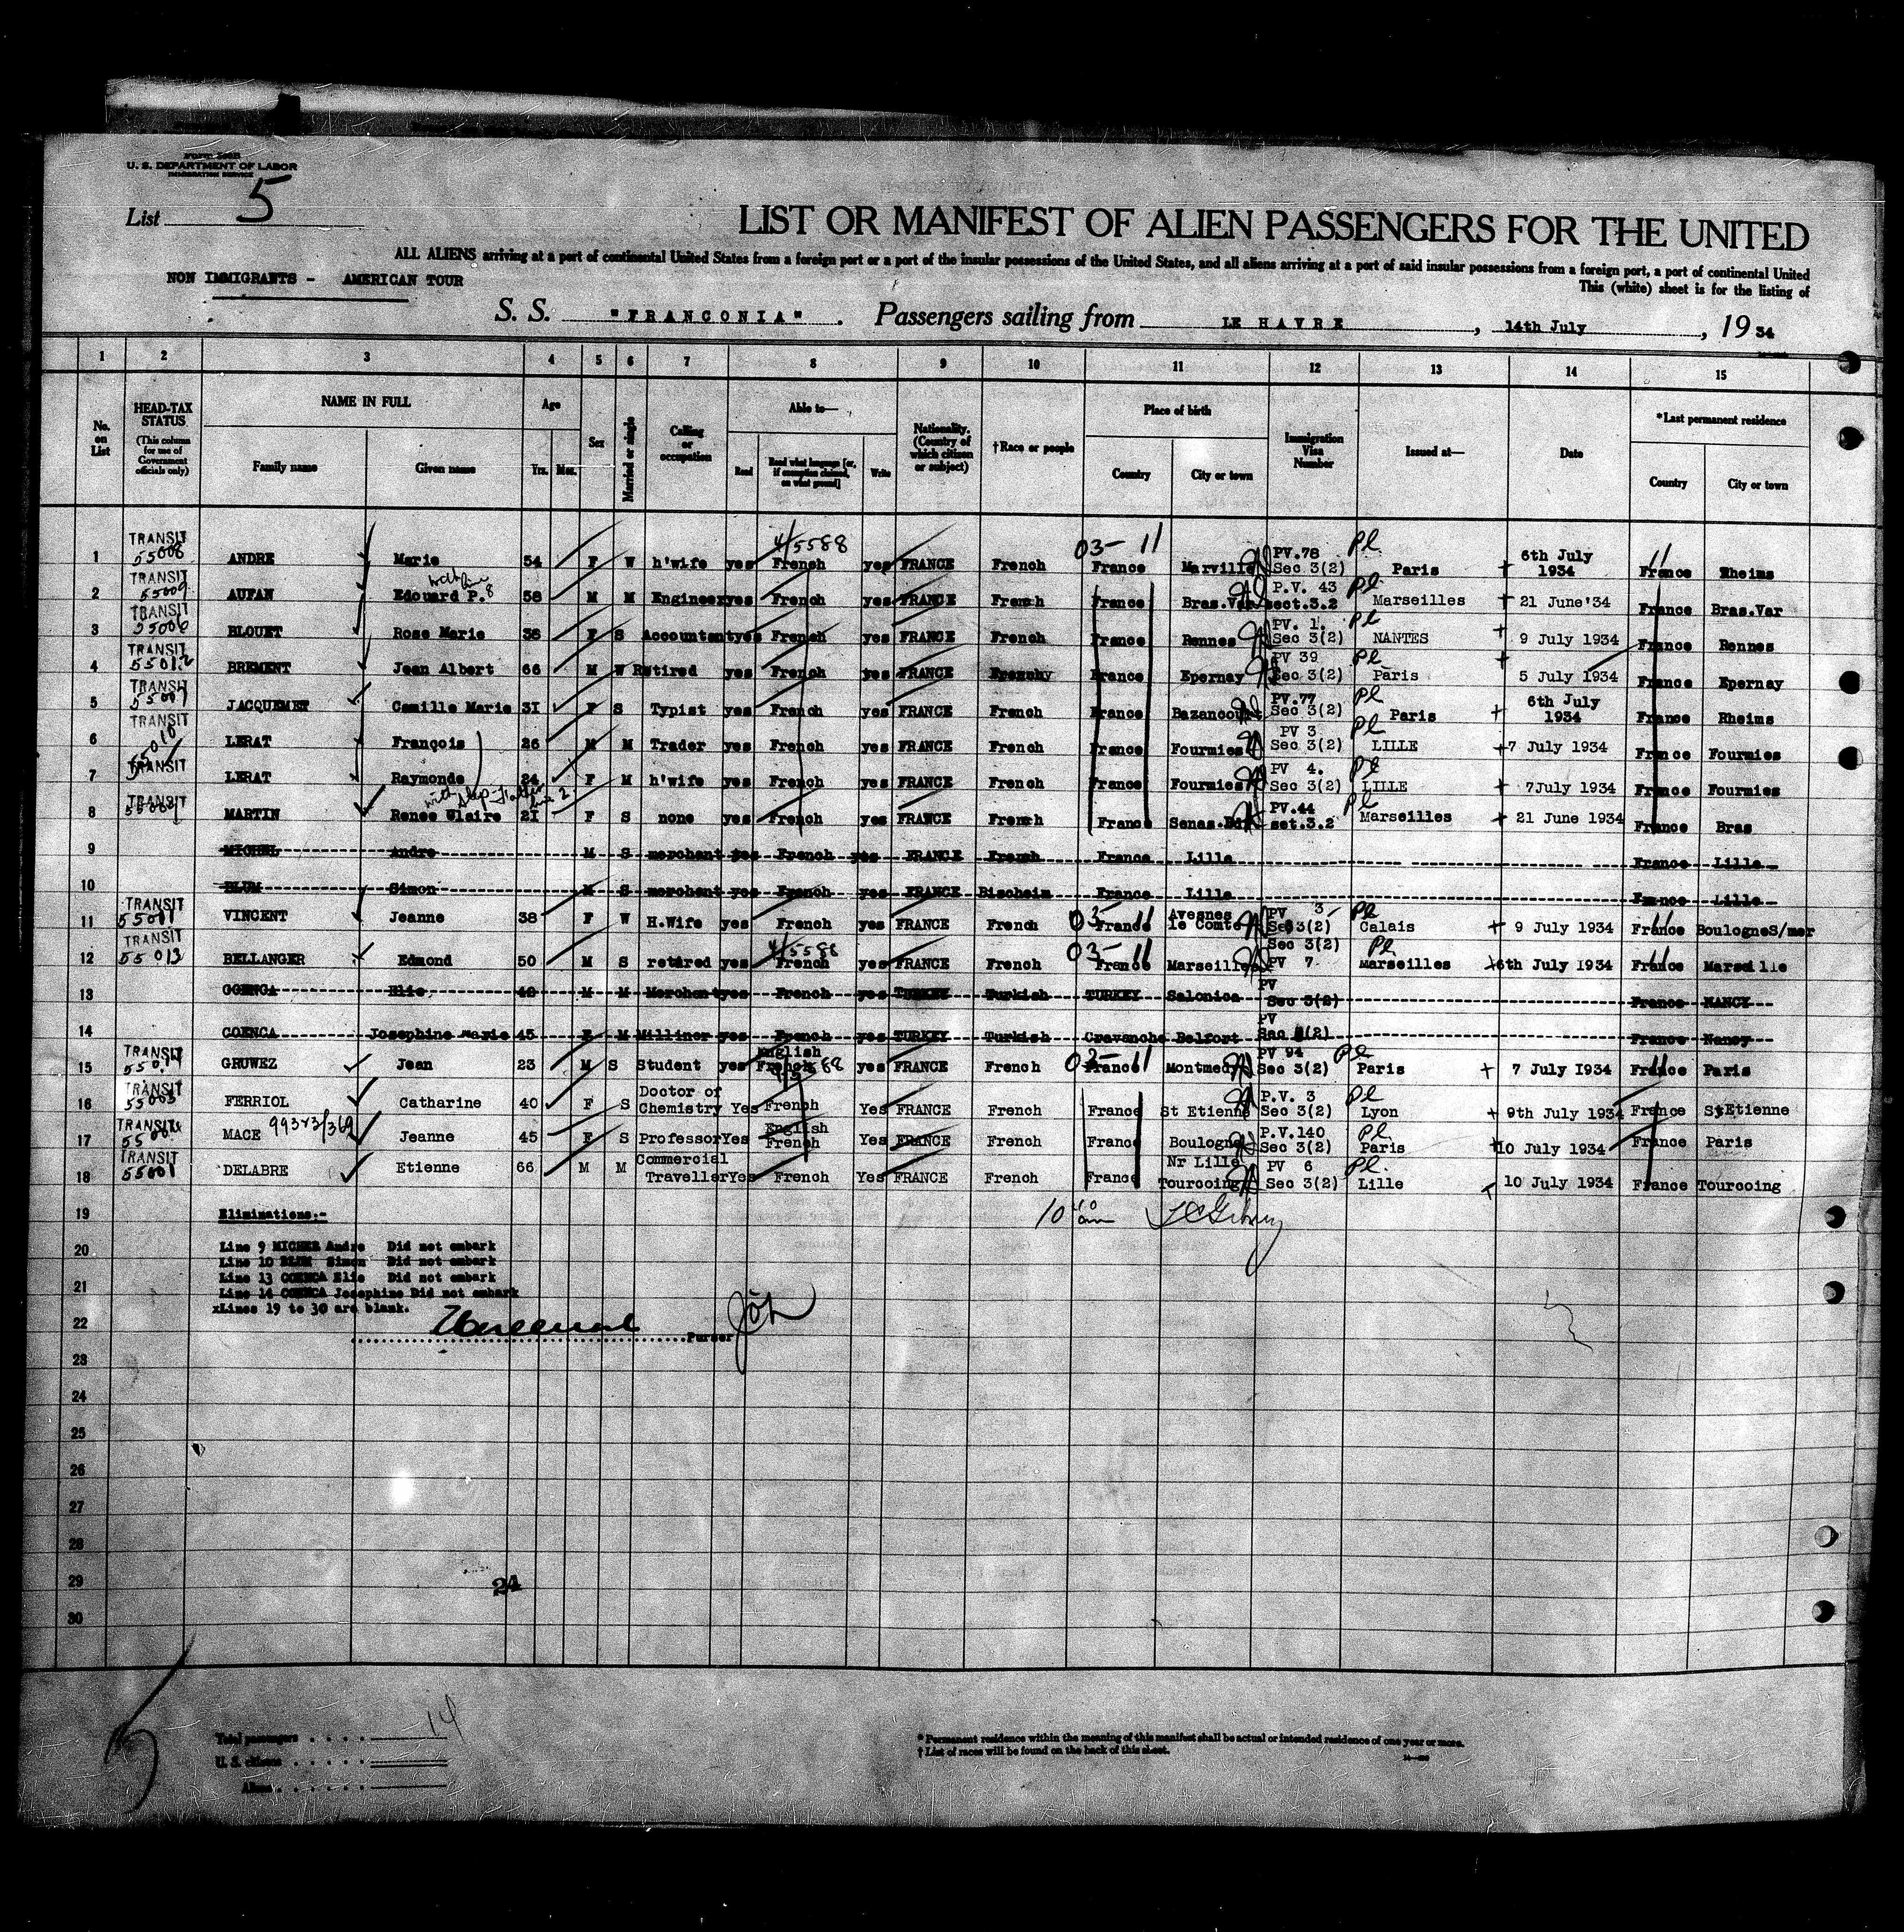 U. S. DEPARTMENT OF LABOR
IMMIGRATION SERVICE
List 5
LIST OR MANIFEST OF ALIEN PASSENGERS FOR THE UNITED
ALL ALIENS arriving at a port of continental United States from a foreign port or a port of the insular possessions of the United States, and all aliens arriving at a port of said insular possessions from a foreign port, a port of continental United
This (white) sheet is for the listing of
NON IMMIGRANTS - AMERICAN TOUR
S. S. "FRANCONIA". Passengers sailing from LE HAVRE, 14th July, 1934
1 2 3 4 5 6 7 8 9 10 11 12 13 14 15
No. on List
HEAD-TAX STATUS (This column for use of Government officials only)
NAME IN FULL Family name Given name
Age Yrs. Mos.
Sex
Married or single
Calling or occupation
Able to— Read Read what language [or, if exemption claimed, on what ground] Write
Nationality. (Country of which citizen or subject)
†Race or people
Place of birth Country City or town
Immigration Visa Number
Issued at—
Date
*Last permanent residence Country City or town
1 TRANSIT 55008 ANDRE Marie 54 F W h'wife yes French 4/5588 yes FRANCE French 03- 11 France Marville PV.78 Sec 3(2) Pl Paris 6th July 1934 France Rheims
2 TRANSIT 55009 AUFAN Edouard P. 58 M M Engineer yes French yes FRANCE French France Bras.Var P.V. 43 sect.3.2 Pl Marseilles 21 June'34 France Bras.Var
3 TRANSIT 55006 BLOUET Rose Marie 36 F S Accountant yes French yes FRANCE French France Rennes PV. 1. Sec 3(2) Pl NANTES 9 July 1934 France Rennes
4 TRANSIT 55012 BREMENT Jean Albert 66 M W Retired yes French yes FRANCE France Epernay PV 39 Sec 3(2) Pl Paris 5 July 1934 France Epernay
5 TRANSIT 55007 JACQUEMET Camille Marie 31 F S Typist yes French yes FRANCE French France Bazancourt PV.77 Sec 3(2) Pl Paris 6th July 1934 France Rheims
6 TRANSIT 55010 LERAT François 26 M M Trader yes French yes FRANCE French France Fourmies PV 3 Sec 3(2) Pl LILLE 7 July 1934 France Fourmies
7 TRANSIT LERAT Raymonde 24 F M h'wife yes French yes FRANCE French France Fourmies PV 4. Sec 3(2) Pl LILLE 7July 1934 France Fourmies
8 TRANSIT MARTIN Renee Claire with step-father line 2 21 F S none yes French yes FRANCE French France Senas. PV.44 set.3.2 Pl Marseilles 21 June 1934 France Bras
9 MICHEL Andre M S merchant yes French yes FRANCE French France Lille France Lille
10 BLUM Simon M S merchant yes French yes FRANCE Bischeim France Lille France Lille
11 TRANSIT 55011 VINCENT Jeanne 38 F W H.Wife yes French yes FRANCE French 03- 11 France Avesnes le Comte PV 3 Sec 3(2) Pl Calais 9 July 1934 France BoulogneS/mer
12 TRANSIT 55013 BELLANGER Edmond 50 M S retired yes French 4/5588 yes FRANCE French 03- 11 France Marseilles Sec 3(2) PV 7 Pl Marseilles 6th July 1934 France Marseille
13 COENCA Elie 48 M M Merchant yes French yes TURKEY Turkish TURKEY Salonica PV Sec 3(2) France NANCY
14 COENCA Josephine Marie 45 F M Milliner yes French yes TURKEY Turkish Cravanche Belfort PV Sec 3(2) France Nancy
15 TRANSIT GRUWEZ Jean 23 M S Student yes English French yes FRANCE French 03- 11 France Montmedy PV 94 Sec 3(2) Pl Paris 7 July 1934 France Paris
16 TRANSIT 55003 FERRIOL Catharine 40 F S Doctor of Chemistry Yes French Yes FRANCE French France St Etienne P.V. 3 Sec 3(2) Pl Lyon 9th July 1934 France St Etienne
17 TRANSIT MACE Jeanne 45 F S Professor Yes English French Yes FRANCE French France Boulogne P.V.140 Sec 3(2) Pl Paris 10 July 1934 France Paris
18 TRANSIT 55001 DELABRE Etienne 66 M M Commercial Traveller Yes French Yes FRANCE French France Nr Lille Tourcoing PV 6 Sec 3(2) Pl. Lille 10 July 1934 France Tourcoing
19 Eliminations:-
20 Line 9 MICHEL Andre Did not embark
Line 10 BLUM Simon Did not embark
21 Line 13 COENCA Elie Did not embark
Line 14 COENCA Josephine Did not embark
xLines 19 to 30 are blank.
22 Purser
23
24
25
26
27
28
29 24
30
Total passengers 14
U. S. citizens
Aliens
* Permanent residence within the meaning of this manifest shall be actual or intended residence of one year or more.
† List of races will be found on the back of this sheet.